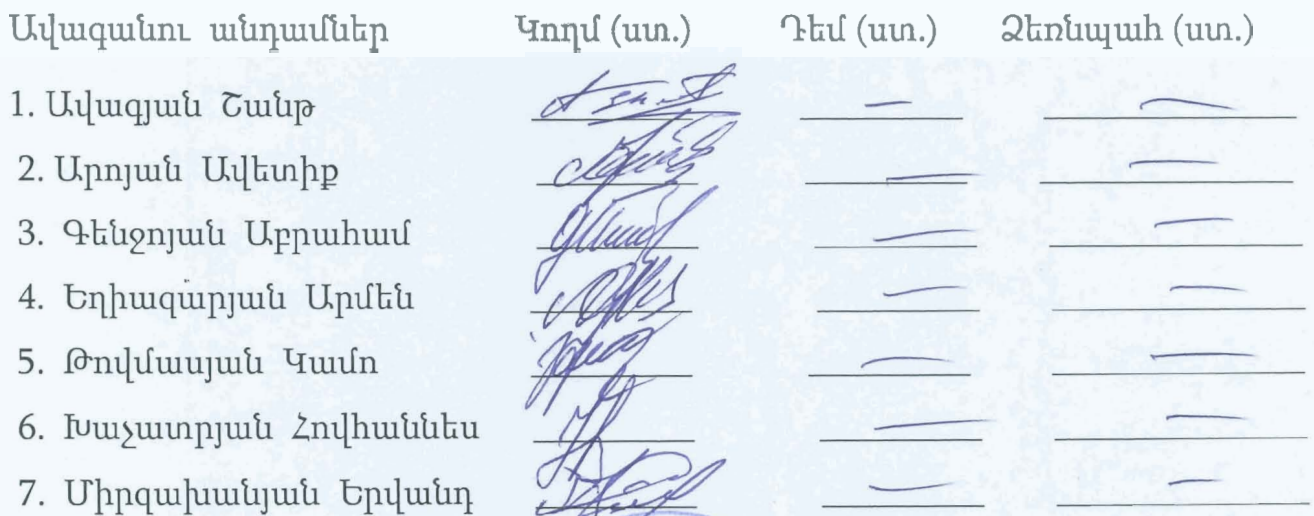 Ավագանու անդամներ Կողմ (ստ.) Դեմ (ստ.) Ձեռնպահ (ստ.)
1. Ավագյան Շանթ — —
2. Արոյան Ավետիք — —
3. Գենջոյան Աբրահամ — —
4. Եղիազարյան Արմեն — —
5. Թովմասյան Կամո — —
6. Խաչատրյան Հովհաննես — —
7. Միրզախանյան Երվանդ — —